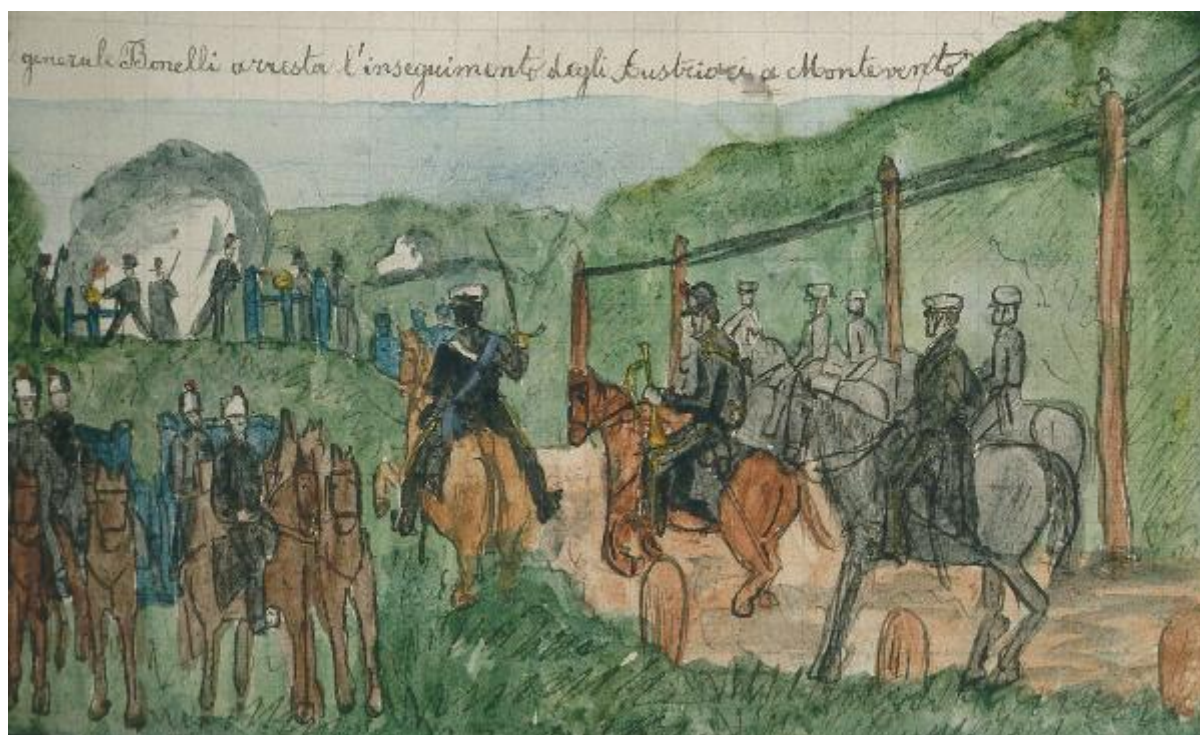 generale Bonelli arresta l'inseguimento degli Austriaci a Montevento